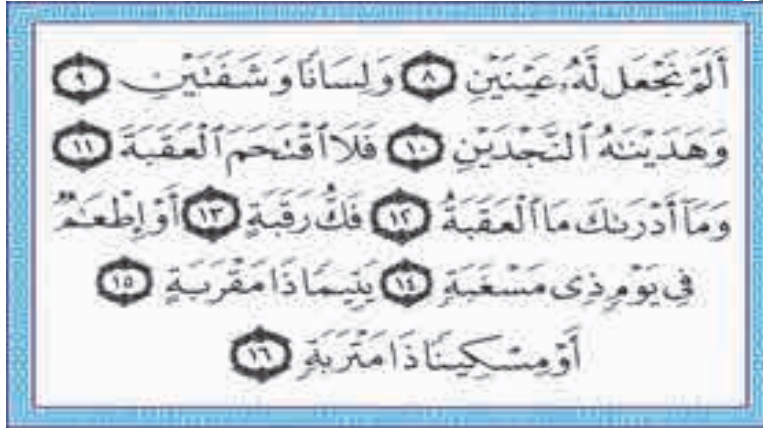 أَلَمْ نَجْعَل لَّهُۥ عَيْنَيْنِ ٨ وَلِسَانًا وَشَفَتَيْنِ ٩
وَهَدَيْنَٰهُ ٱلنَّجْدَيْنِ ١٠ فَلَا ٱقْتَحَمَ ٱلْعَقَبَةَ ١١
وَمَآ أَدْرَىٰكَ مَا ٱلْعَقَبَةُ ١٢ فَكُّ رَقَبَةٍ ١٣ أَوْ إِطْعَٰمٌ
فِى يَوْمٍ ذِى مَسْغَبَةٍ ١٤ يَتِيمًا ذَا مَقْرَبَةٍ ١٥
أَوْ مِسْكِينًا ذَا مَتْرَبَةٍ ١٦